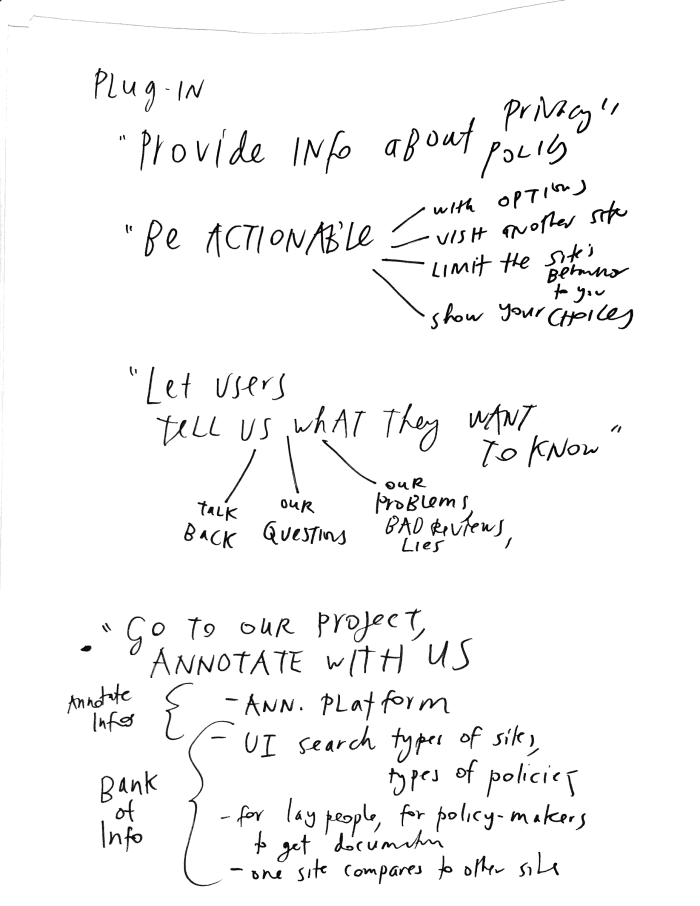 PLUG-IN
"Provide INfo about Privacy"
Policy
"Be ACTIONABLE
with OPTIONS
VISIT another site
LIMIT the site's
Behavior
to you
show your CHOICES
"Let users
tell us what they WANT
TO KNOW"
TALK
BACK
OUR
QUESTIONS
OUR
PROBLEMS,
BAD REVIEWS,
LIES,
"Go to our project,
ANNOTATE WITH US
Annotate
Info
- ANN. PLATFORM
- UI search types of sites,
types of policies
Bank
of
Info
- for lay people, for policy-makers
to get documents
- one site compares to other site